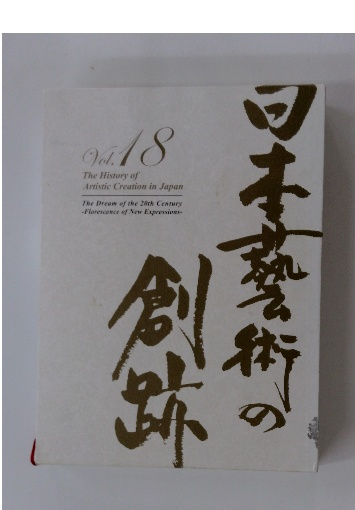 日本藝術の
創跡
Vol.18
The History of
Artistic Creation in Japan
The Dream of the 20th Century
-Florescence of New Expressions-